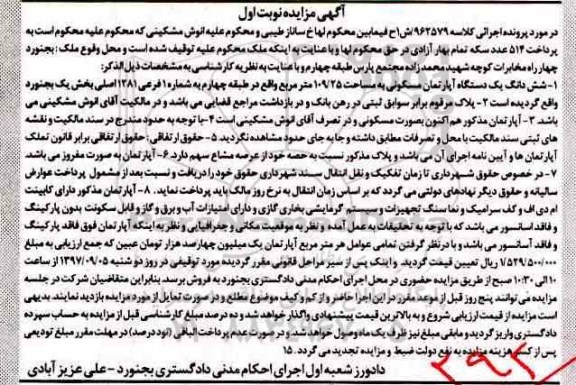 آگهی مزایده نوبت اول
در مورد پرونده اجرائی کلاسه ۹۶۲۵۷۹/ش/ح فیمابین محکوم لها خ ساناز طیبی و محکوم علیه انوش مشکینی که محکوم علیه محکوم است به
پرداخت ۵۱۴ عدد سکه تمام بهار آزادی در حق محکوم لها و با عنایت به اینکه ملک محکوم علیه توقیف شده است و محل وقوع ملک: بجنورد
چهار راه مخابرات کوچه شهید محمدزاده مجتمع پارس طبقه چهارم و با عنایت به نظریه کارشناسی به مشخصات ذیل الذکر:
۱- شش دانگ یک دستگاه آپارتمان مسکونی به مساحت ۱۰۹/۲۵ متر مربع واقع در طبقه چهارم به شماره ۱ فرعی ۱۲۸۱ اصلی بخش یک بجنورد
واقع گردیده است ۲- پلاک مرقوم برابر سوابق ثبتی در رهن بانک و در بازداشت مراجع قضایی می باشد و در مالکیت آقای انوش مشکینی می
باشد. ۳- آپارتمان مذکور هم اکنون بصورت مسکونی و در تصرف آقای انوش مشکینی است ۴- با توجه به حدود مندرج در سند مالکیت و نقشه
های ثبتی سند مالکیت با محل و تصرفات مطابق داشته و جا به جای حدود مشاهده نگردید ۵- حقوق ارتفاقی: حقوق ارتفاقی برابر قانون تملک
آپارتمان ها و آیین نامه اجرای آن می باشد و پلاک مذکور نسبت به حصه خود از عرصه مشاع سهم دارد. ۶- آپارتمان به صورت مفروز می باشد.
۷- در خصوص حقوق شهرداری تا زمان تفکیک و نقل انتقال سند شهرداری حقوق خود را دریافت و نسبت بعد از مشمول پرداخت عوارض
سالیانه و حقوق دیگر نهادهای دولتی می گردد که بر اساس زمان انتقال به نرخ روز مالک باید پرداخت نماید. ۸- آپارتمان مذکور دارای کابینت
ام دی اف و کف سرامیک و نما سنگ تجهیزات و سیستم گرمایشی بخاری گازی و دارای امتیازات آب و برق و گاز و قابل سکونت بدون پارکینگ
و فاقد آسانسور می باشد که با توجه به تحقیقات به عمل آمده و نظر به موقعیت مکانی و جغرافیایی و نظر به اینکه آپارتمان فوق فاقد پارکینگ
و فاقد آسانسور می باشد و با در نظر گرفتن تمامی عوامل هر متر مربع آپارتمان یک میلیون چهارصد هزار تومان عیین که جمع ارزیابی به مبلغ
۱/۵۲۹/۵۰۰/۰۰۰ ریال تعیین قیمت گردید. و اینک پس از سیر مراحل قانونی مقرر گردیده مورد توقیفی در روز دو شنبه ۱۳۹۷/۰۹/۰۵ از ساعت
۱۰ الی ۱۰:۳۰ صبح از طریق مزایده حضوری در محل اجرای احکام مدنی دادگستری بجنورد به فروش برسد. بنابراین متقاضیان شرکت در جلسه
مزایده می توانند پنج روز قبل از موعد مقرر در این اجرا حاضر و از کم و کیف موضوع مطلع و در صورت تمایل از مورد مزایده بازدید نمایند. بدیهی
است مزایده از قیمت ارزیابی شروع و به بالاترین قیمت پیشنهادی واگذار خواهد شد و ده درصد مبلغ کارشناسی قبل از مزایده به حساب سپرده
دادگستری واریز گردید و مابقی مبلغ نیز ظرف یک ماه وصول خواهد شد. و در صورت عدم پرداخت الباقی (نود درصد) در مهلت مقرر مبلغ تودیعی
پس از کسر هزینه مزایده به نفع دولت ضبط و مزایده تجدید می گردد. ۱۵
دادورز شعبه اول اجرای احکام مدنی دادگستری بجنورد - علی عزیز آبادی